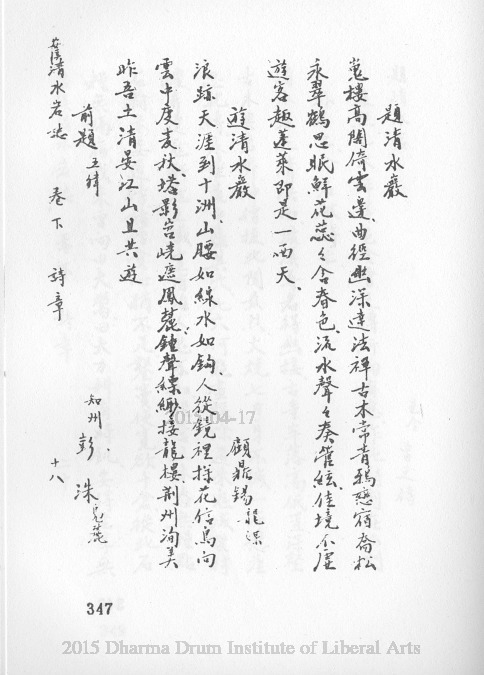 題清水巖
嵬樓高閣倚雲邊、曲徑幽深達法禪古木常青鴉戀宿喬松
永翠鶴思眠鮮花蕊々含春色、流水聲々奏管絃、佳境
遊客趣蓬萊即是一西天、
遊清水巖
顧鼎錫
浪跡天涯到十洲、山腰如線水如鉤、人從鏡裡探花信鳥向
雲中度麦秋、塔影岧嶢遮鳳麓、鐘聲縹緲接龍樓、荆州洵美
昨吾土清晏江山且共遊
前題 五律
知州 彭洙
安溪清水岩志 卷下 詩章 十八
347
2015-04-17
2015 Dharma Drum Institute of Liberal Arts